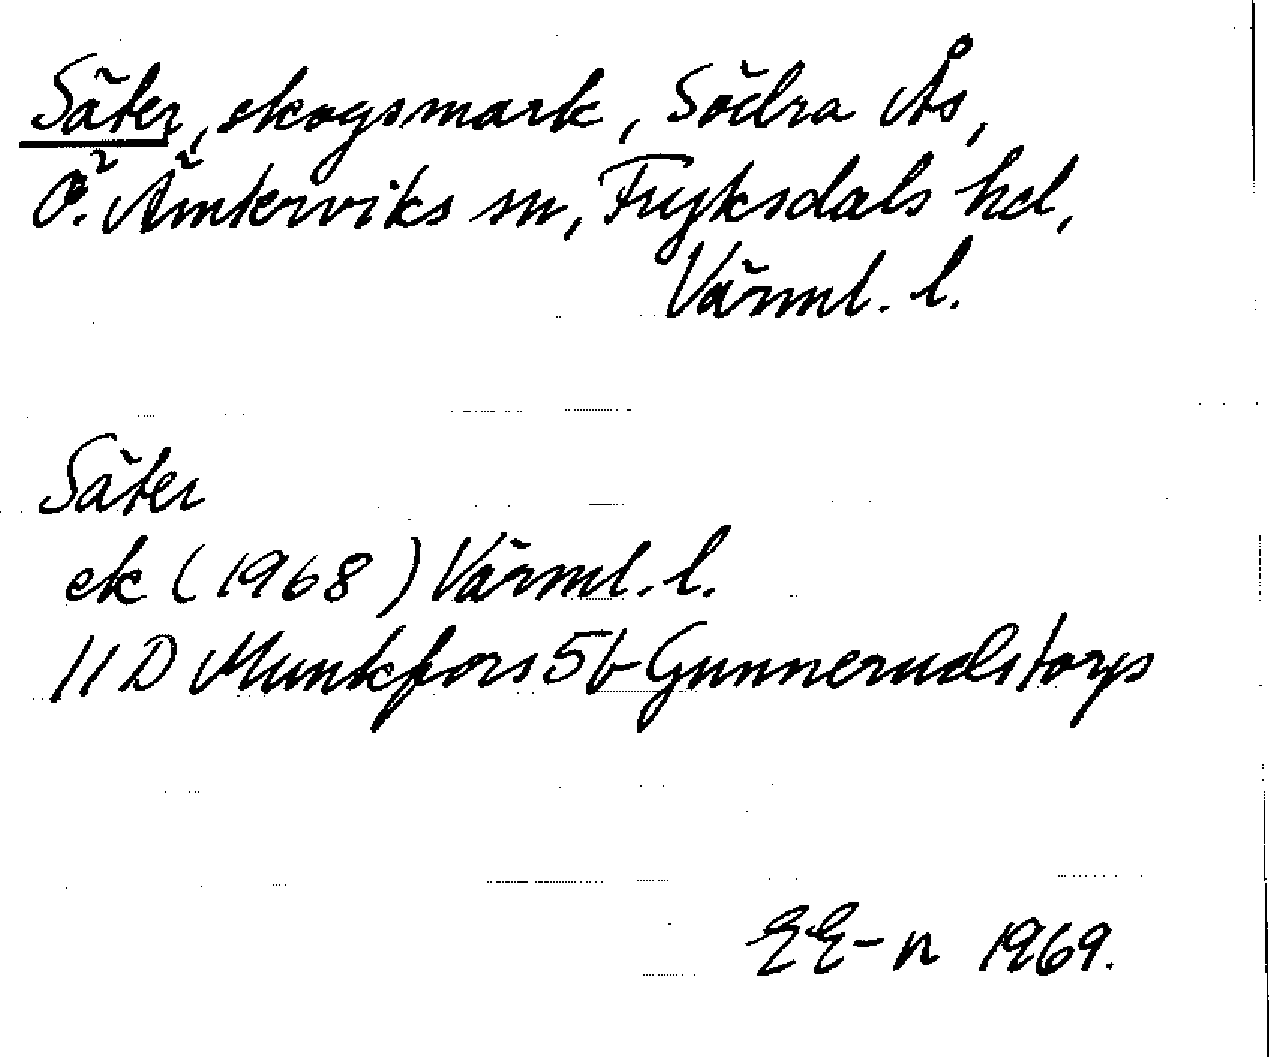 Säter, skogsmark, Södra Ås,
Ö. Ämterviks sn, Fryksdals hd,
Värml. l.
Säter
ek (1968) Värml. l.
11 D Munkfors 5b Gunnerudstorp
EE-n 1969.